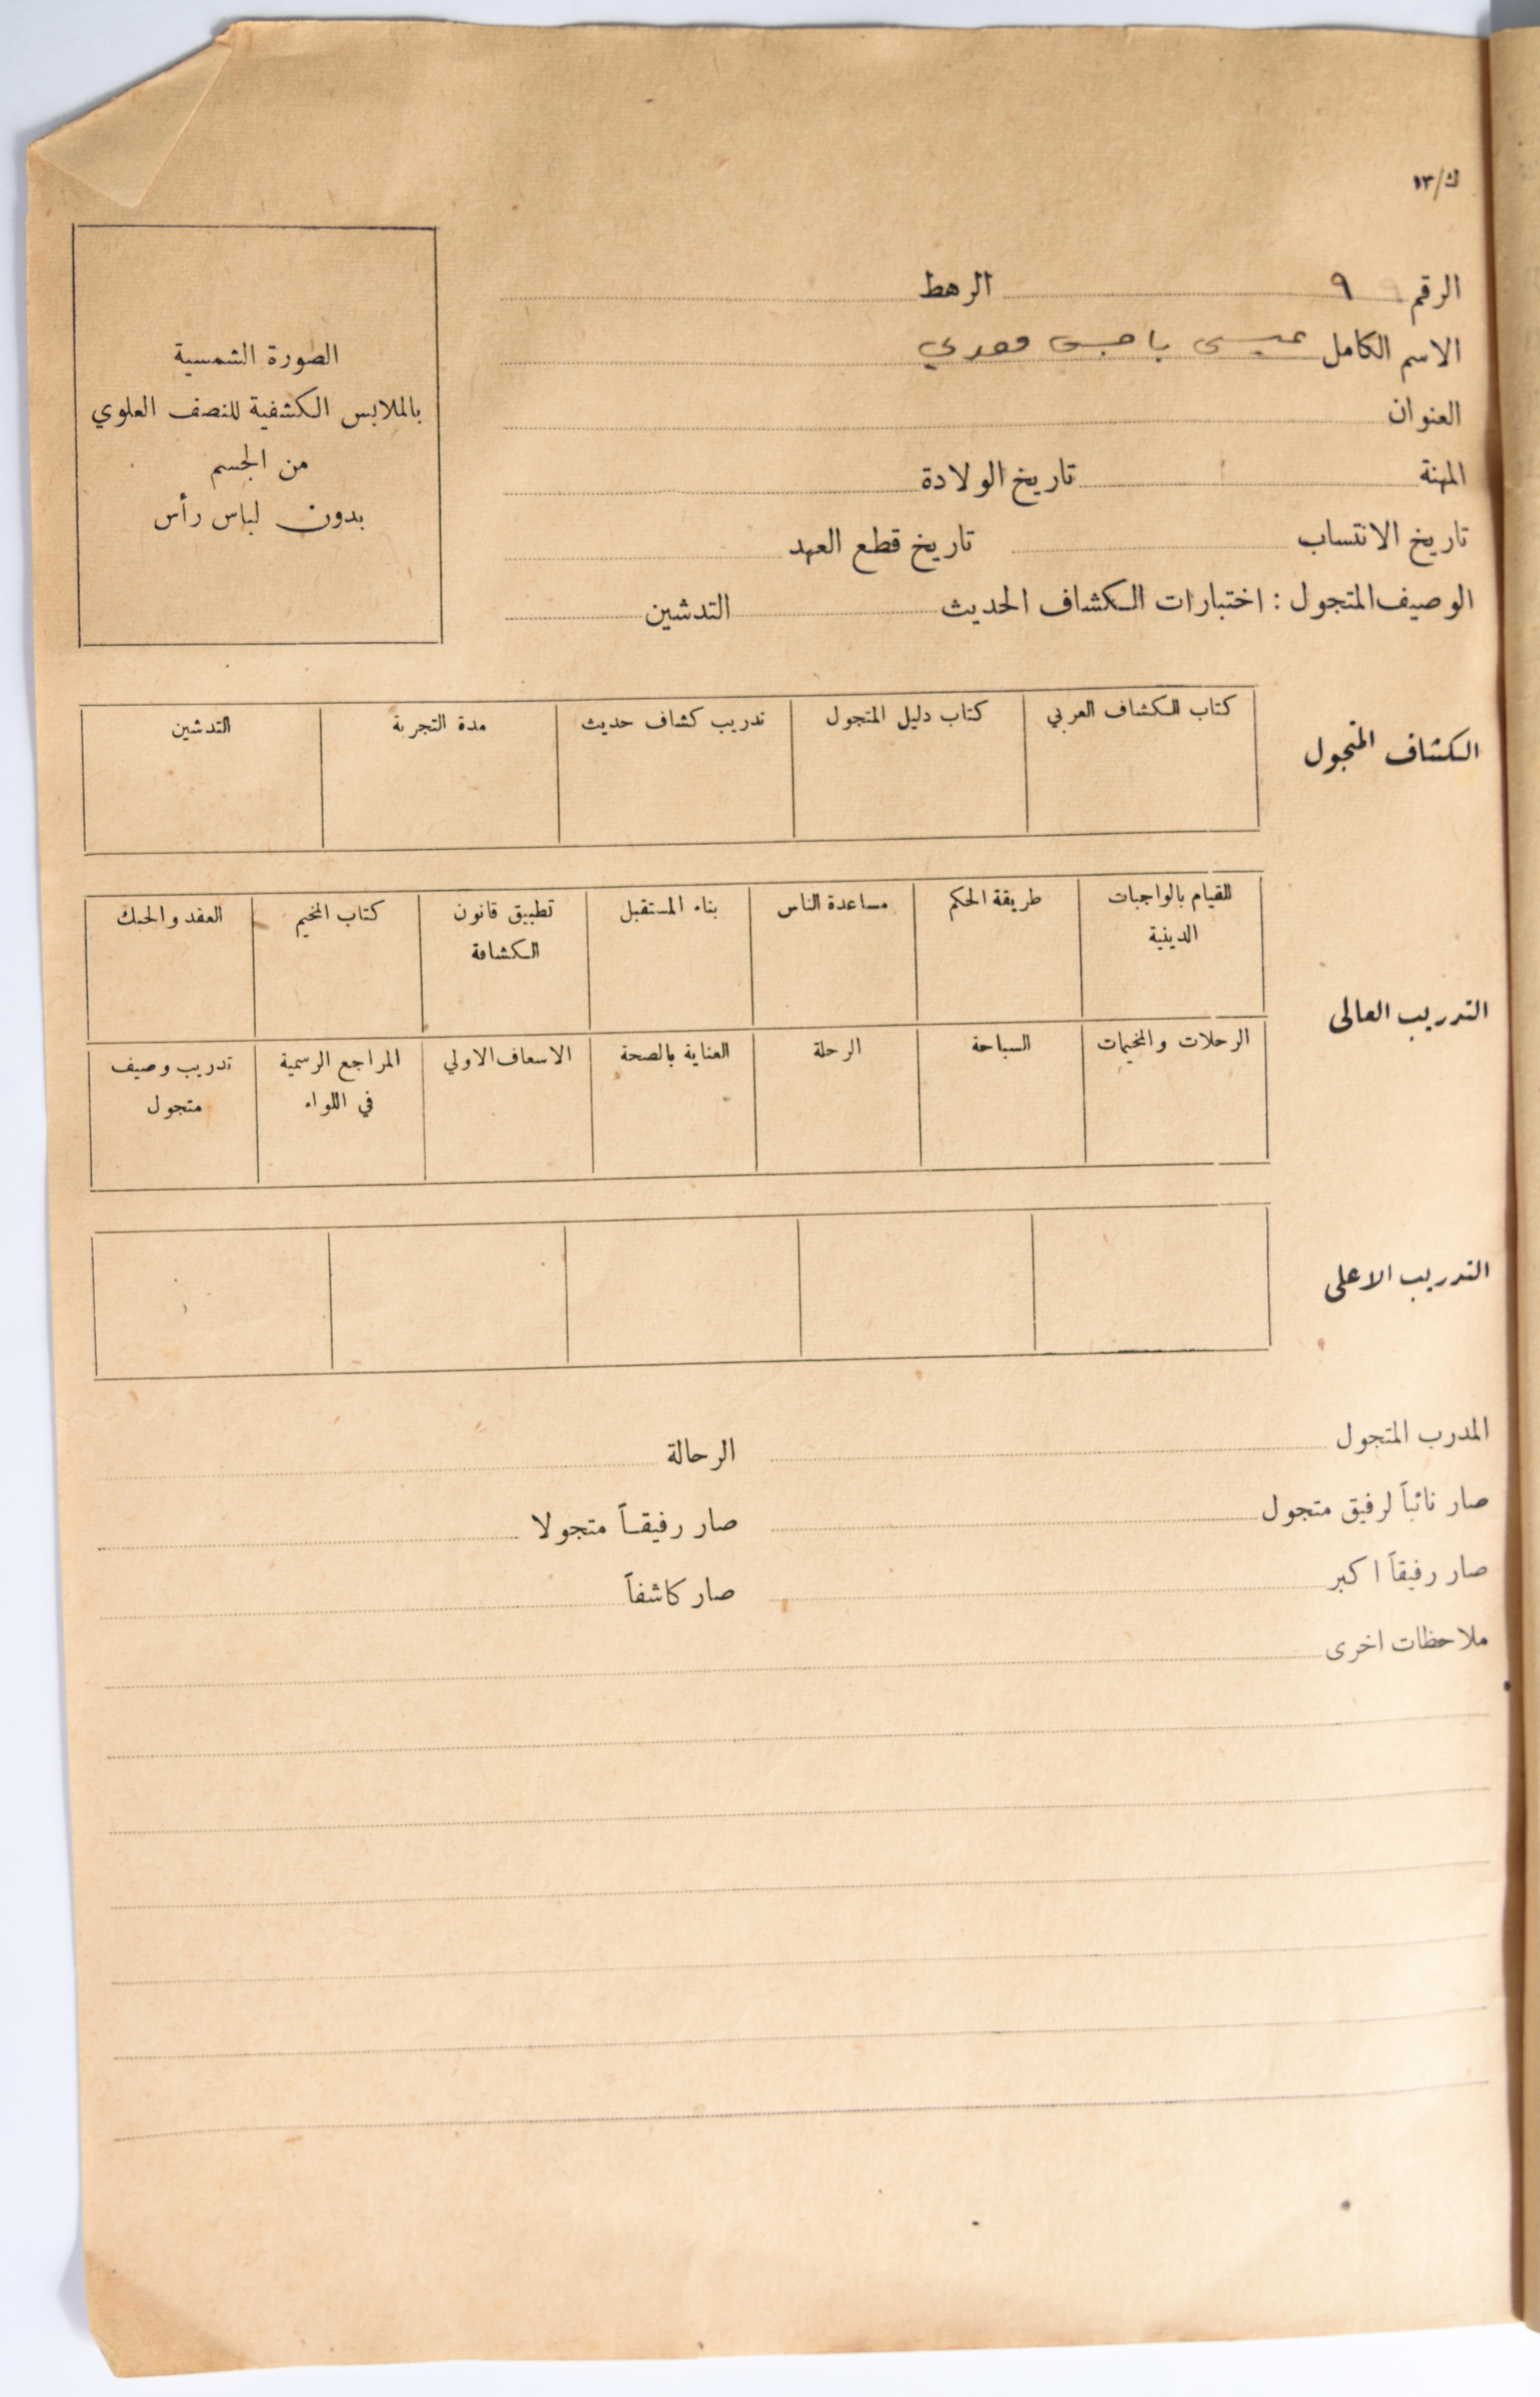 ك/١٣
الرقم ٩ الرهط
الاسم الكامل عيسى يا معدي
العنوان
المهنة تاريخ الولادة
تاريخ الانتساب تاريخ قطع العهد
الوصيف المتجول : اختبارات الكشاف الحديث التدشين
الصورة الشمسية
بالملابس الكشفية للنصف العلوي
من الجسم
بدون لباس رأس
الكشاف المتجول
كتاب الكشاف العربي كتاب دليل المتجول تدريب كشاف حديث مدة التجربة التدشين
التدريب العالى
القيام بالواجبات طريقة الحكم مساعدة الناس بناء المستقبل تطبيق قانون كتاب المخيم العقد والحبك
الدينية الكشافة
الرحلات والمخيمات السباحة الرحلة العناية بالصحة الاسعاف الاولي المراجع الرسمية تدريب وصيف
في اللواء متجول
التدريب الاعلى
المدرب المتجول الرحالة
صار نائباً لرفيق متجول صار رفيقاً متجولا
صار رفيقاً اكبر صار كاشفاً
ملاحظات اخرى